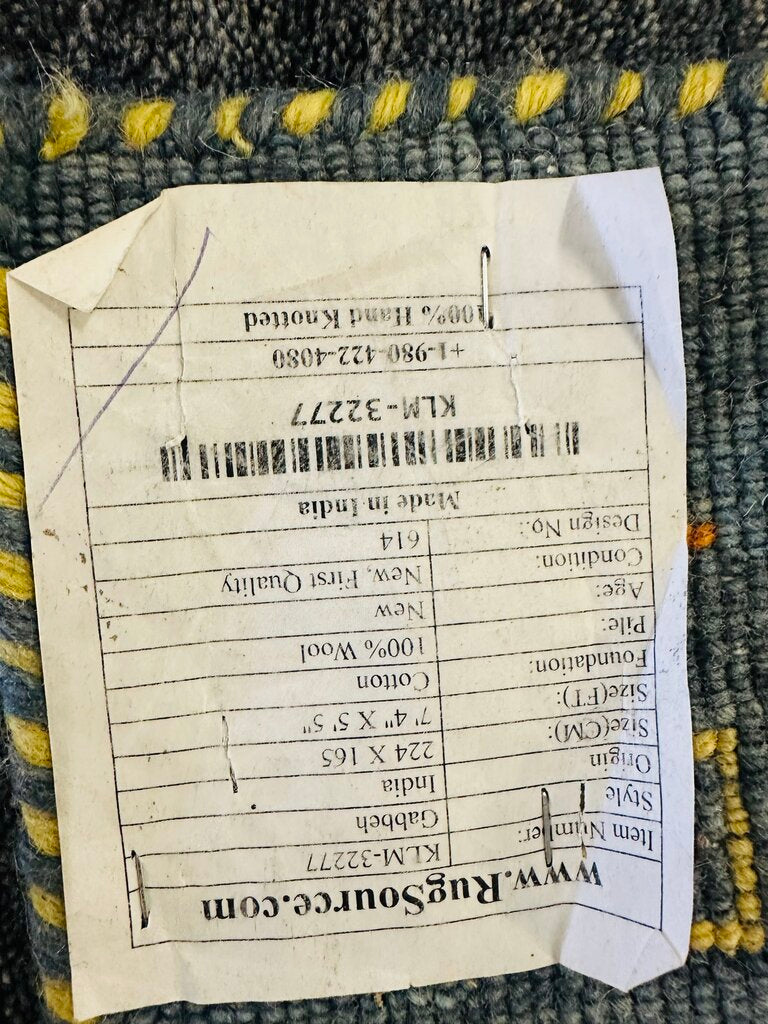 www.RugSource.com
Item Number: KLM-32277
Style Gabbeh
Origin India
Size(CM): 224 X 165
Size(FT): 7' 4" X 5' 5"
Foundation: Cotton
Pile: 100% Wool
Age: New
Condition: New, First Quality
Design No.: 614
Made in India
KLM-32277
+1-980-422-4080
100% Hand Knotted